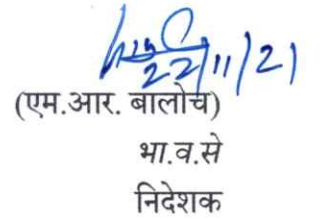 22/11/21
(एम.आर. बालोच)
भा.व.से
निदेशक